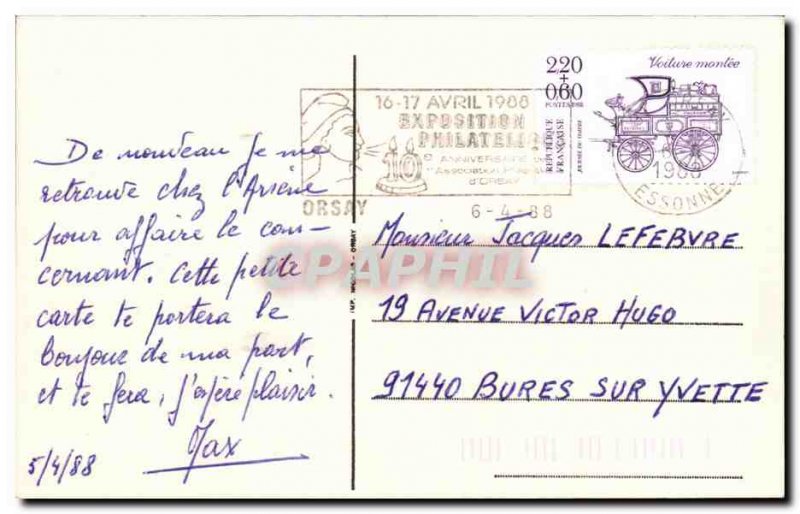 De nouveau je me
retrouve chez l'Arsène
pour affaire le con-
cernant. Cette petite
carte te portera le
bonjour de ma part,
et te fera, j'espère plaisir.
Max
5/4/88
IMP. NICOLAS - ORSAY
16-17 AVRIL 1988
EXPOSITION
PHILATELI
10
ANNIVERSAIRE
Association
d'ORSAY
ORSAY
6-4-88
2,20
+
0,60
Voiture montée
POSTES 1988
REPUBLIQUE
FRANÇAISE
JOURNÉE DU TIMBRE
1988
ESSONNE
Monsieur Jacques LEFEBVRE
19 AVENUE VICTOR HUGO
91440 BURES SUR YVETTE
CPAPHIL